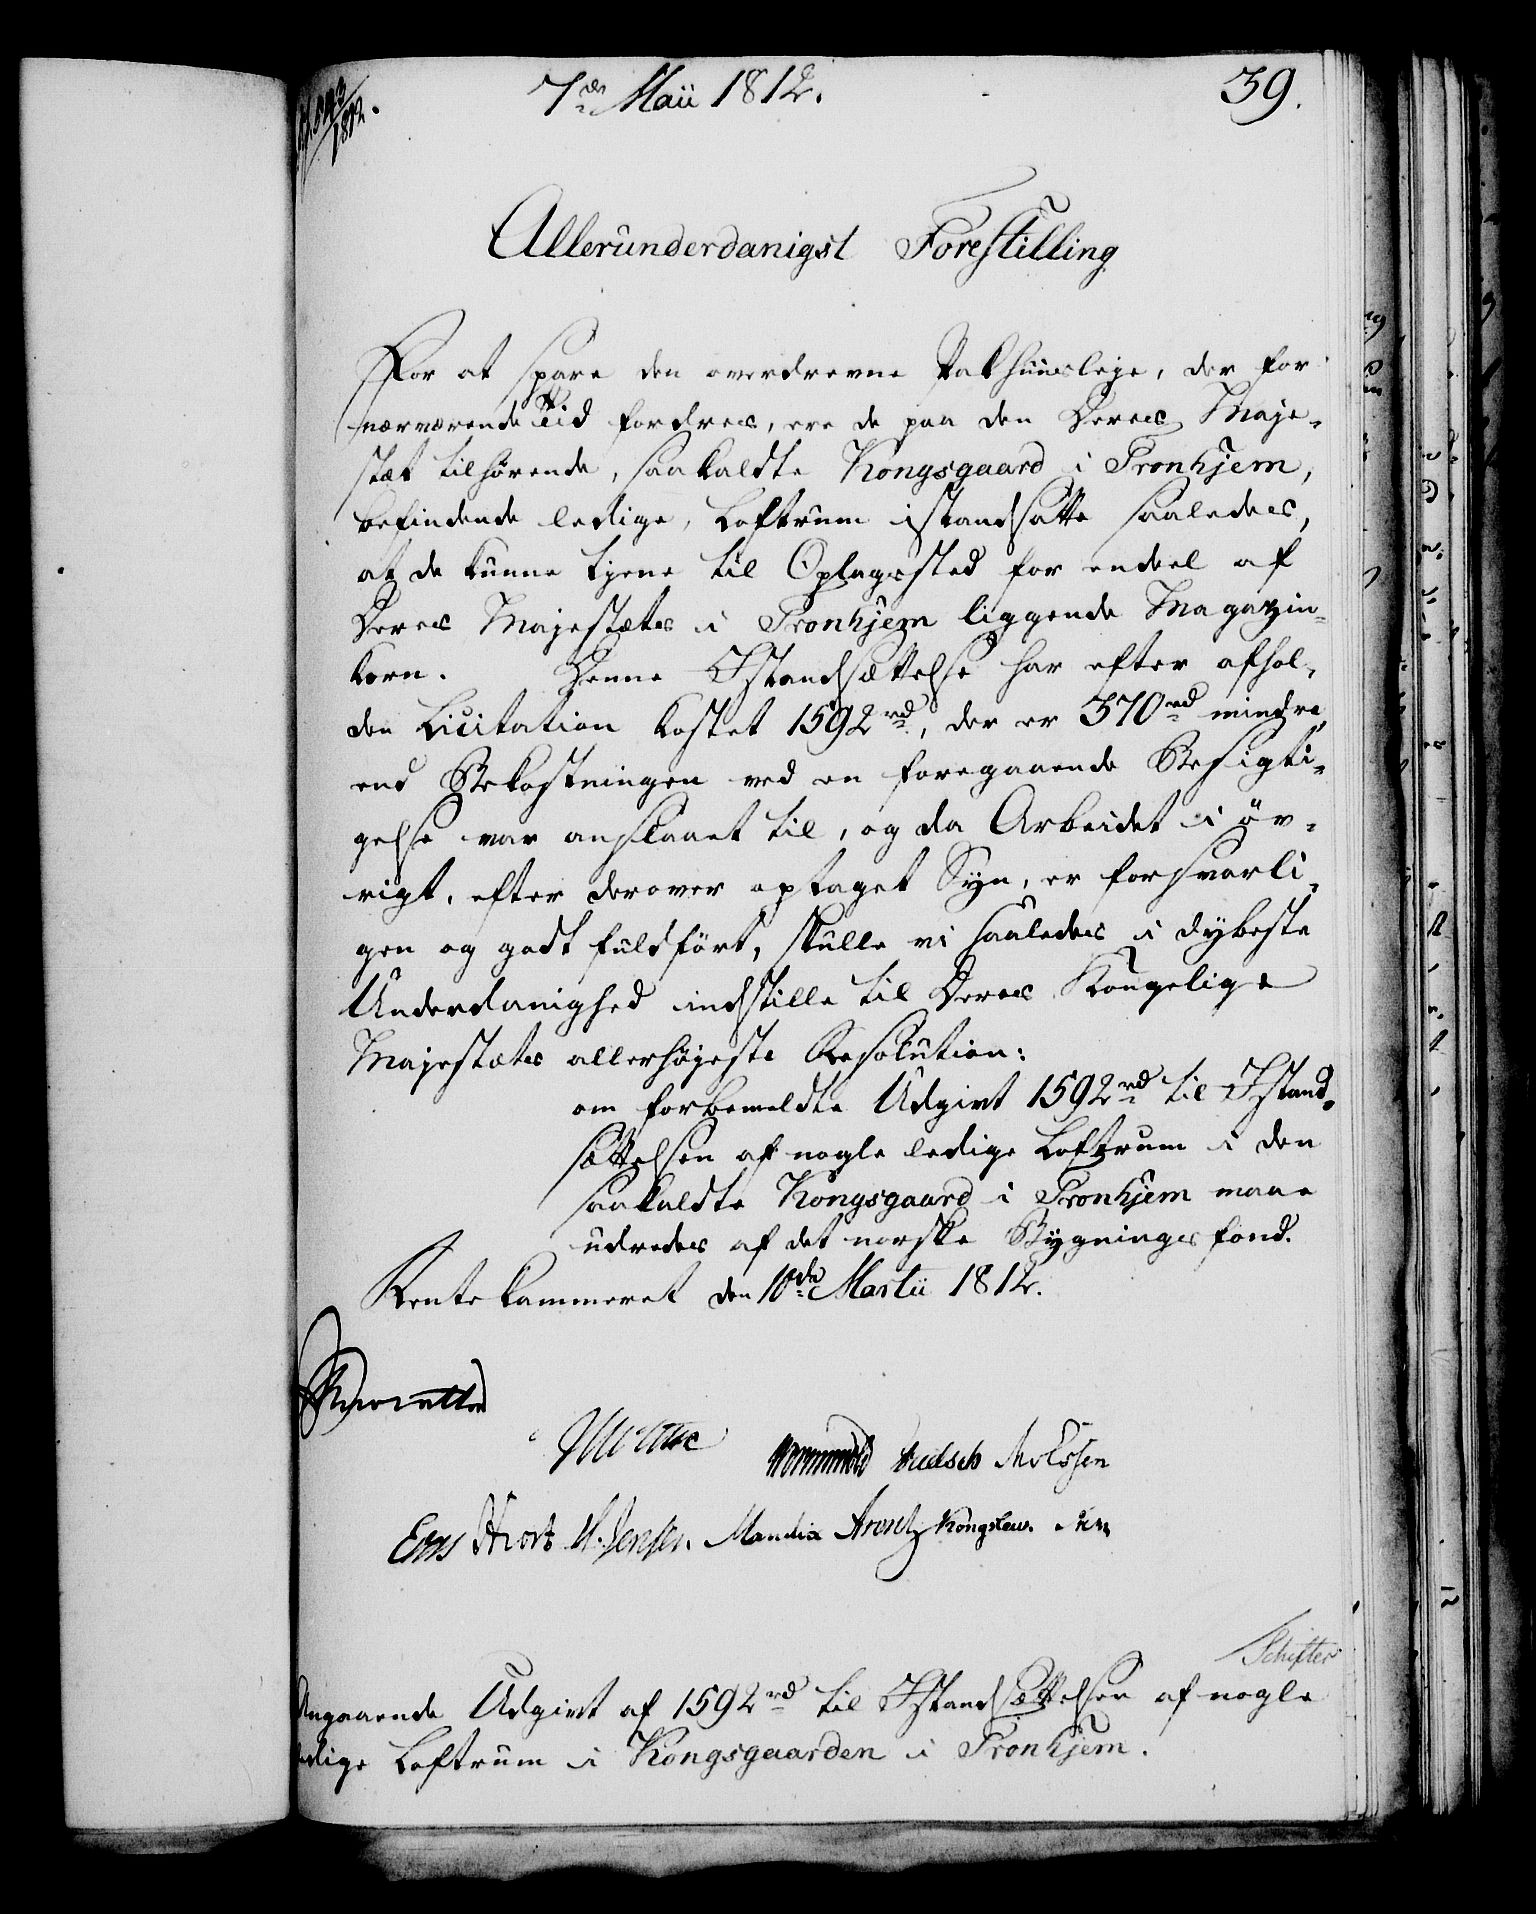 7de Maii 1812.
39.
1812.
Allerunderdanigst Forestilling
For at spare den overdrevne Pakhuusleje, der for
nærværende Tiid fordres, ere de paa den Deres Maje-
stæt tilhørende, saakaldte Kongsgaard i Tronhjem,
befindende ledige, Loftrum istandsatte saaledes,
at de kunne tjene til Oplagssted for endeel af
Deres Majestæts i Tronhjem liggende Magazin-
korn. Denne Istandsættelse har efter afhol-
den Licitation kostet 1592rd, der er 370rd mindre,
end Bekostningen ved en foregaaende Besigti-
gelse var anslaaet til, og da Arbeidet i øv-
rigt, efter derover optaget Syn, er forsvarli-
gen og godt fuldført, skulle vi saaledes i dybeste
Underdanighed indstille til Deres Kongelige
Majestæts allerhøjeste Resolution:
om forbemeldte Udgivt 1592rd til Istand-
sættelsen af nogle ledige Loftrum i den
saakaldte Kongsgaard i Tronhjem maae
udredes af det norske Bygnings fond.
Rentekammeret den 10de Martii 1812.
Moltke
Wormskiold Knudsen
Hiort H. Jensen. Manthey Arentz Kongslew.
Schifter
Angaaende Udgivt af 1592rd til Istandsættelsen af nogle
ledige Loftrum i Kongsgaarden i Tronhjem.